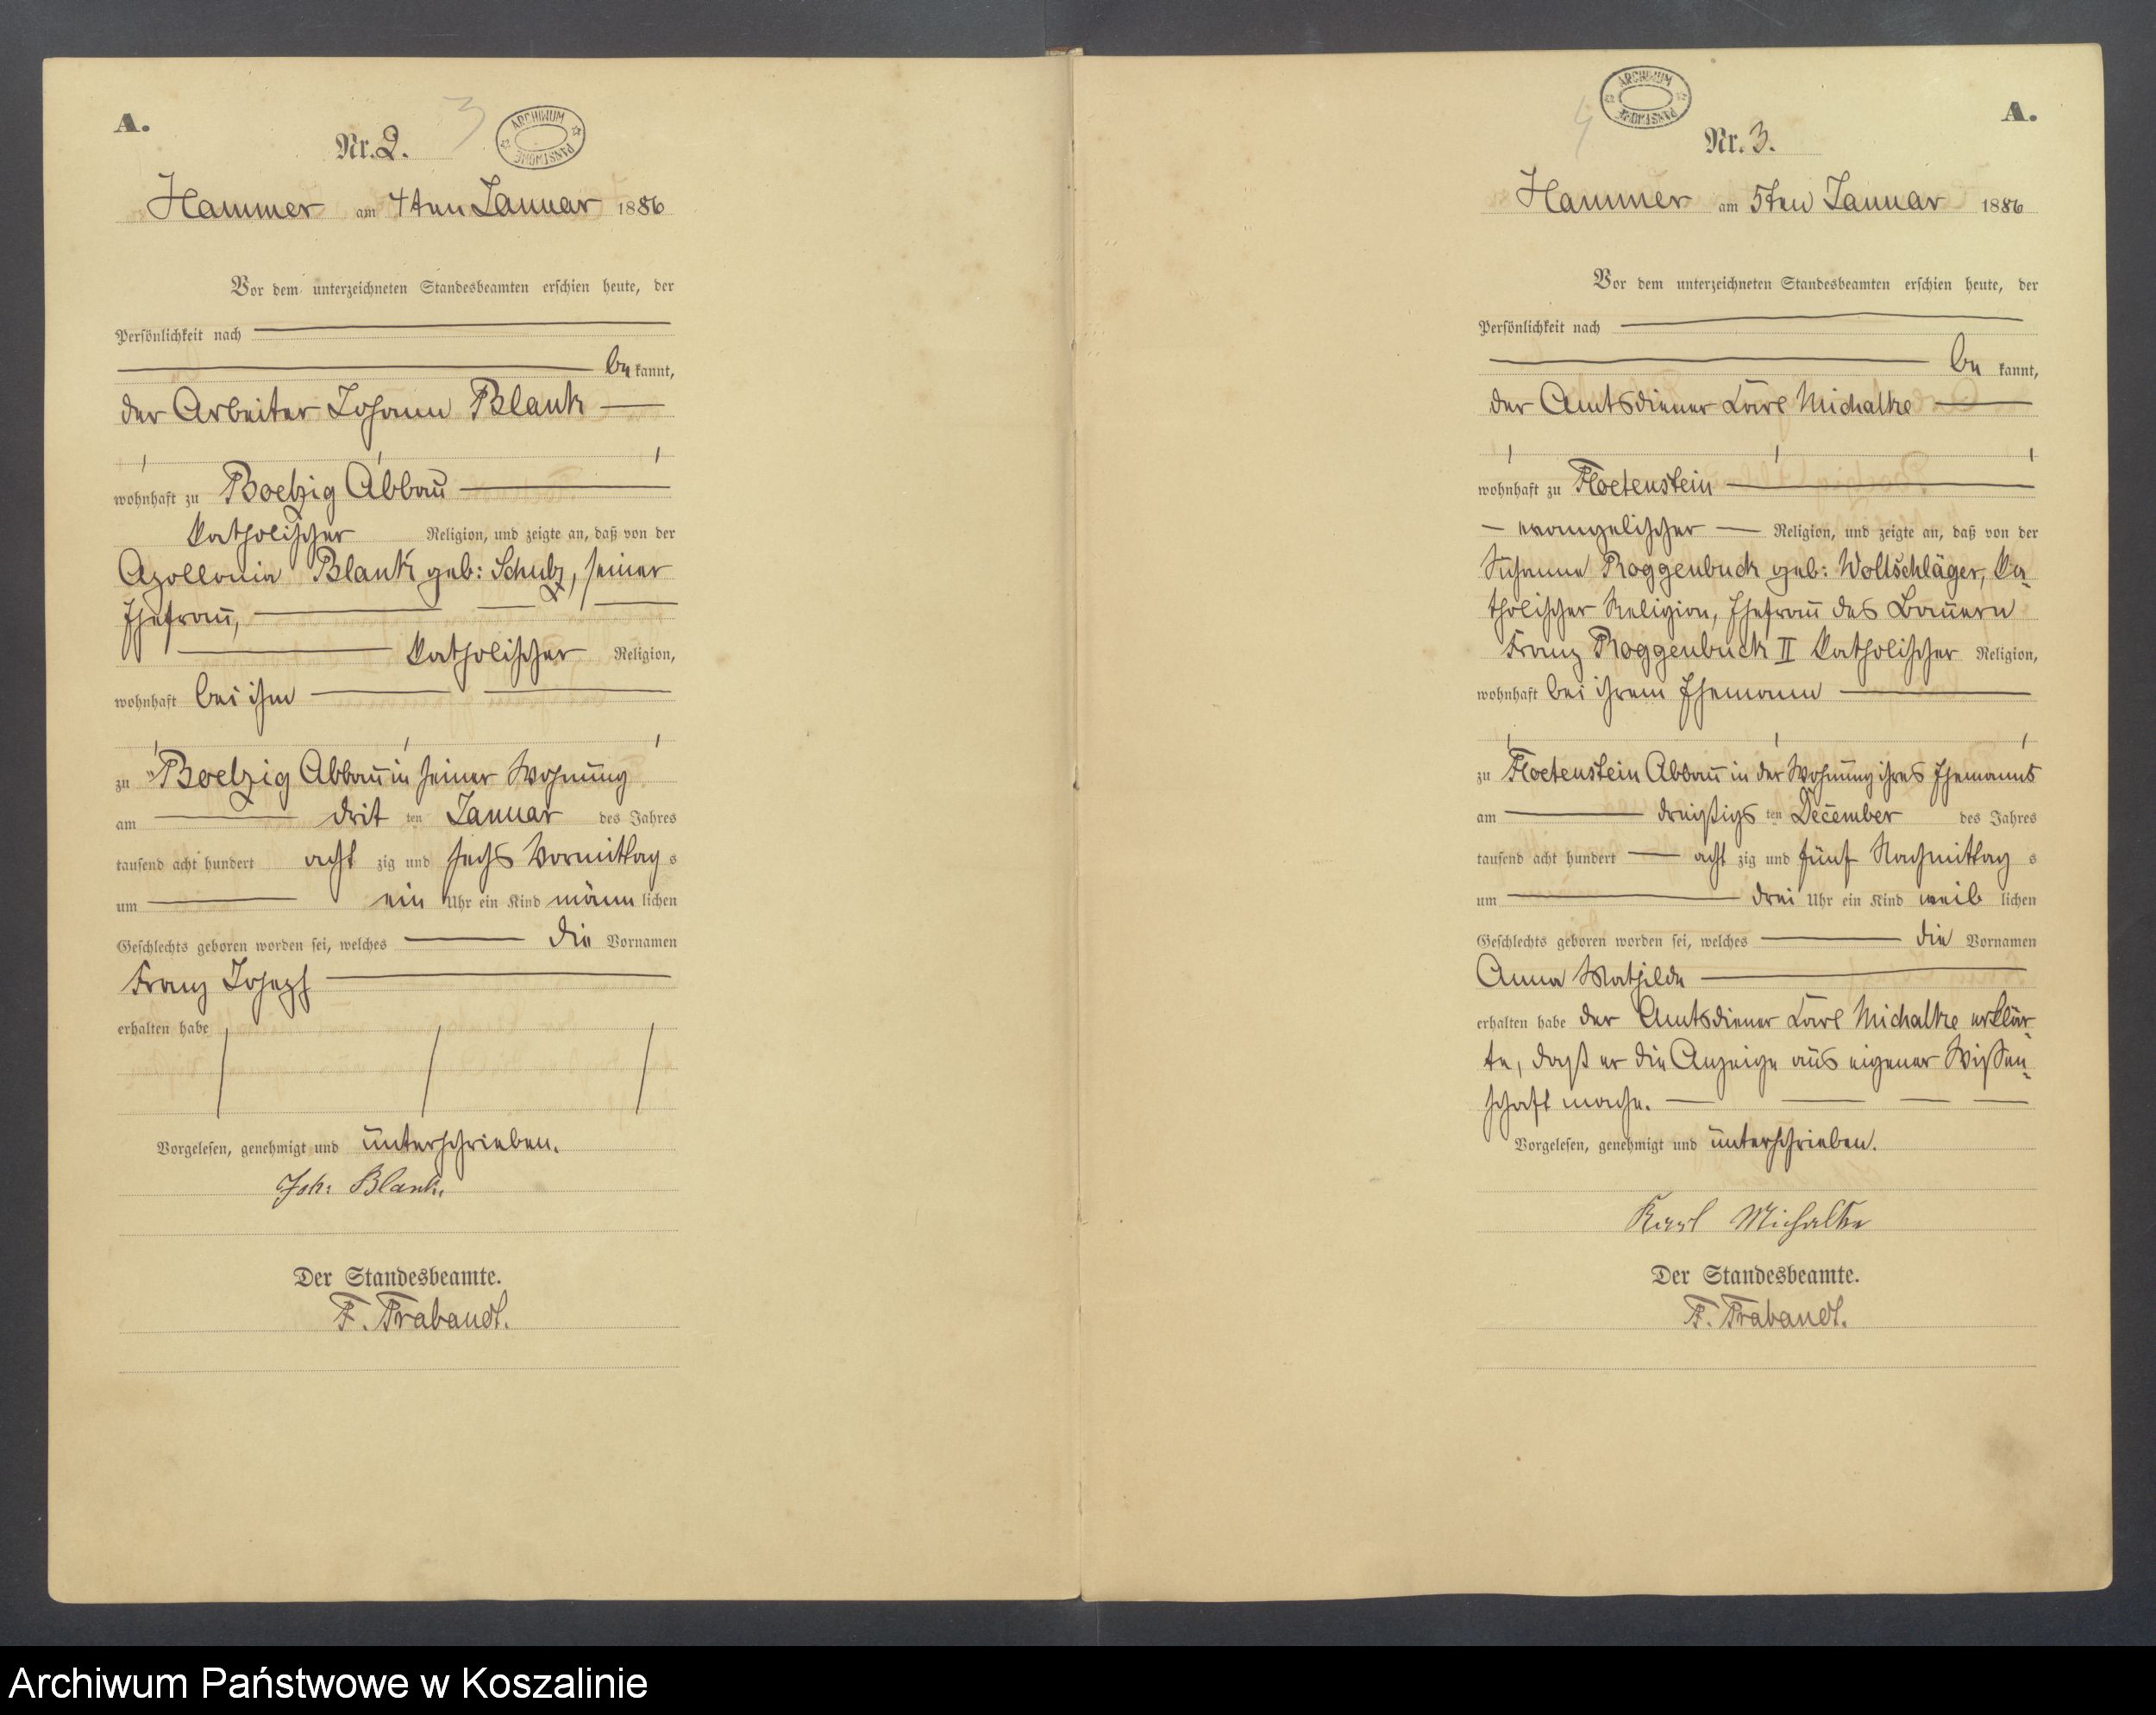 A.
Nr. 2.
3
ARCHIWUM PAŃSTWOWE
Hammer am 4ten Januar 1886
Vor dem unterzeichneten Standesbeamten erschien heute, der
Persönlichkeit nach
be kannt,
der Arbeiter Johann Blank
wohnhaft zu Boelzig Abbau
katholischer Religion, und zeigte an, daß von der
Apollonia Blank geb: Schulz, seiner
Ehefrau,
katholischer Religion,
wohnhaft bei ihm
zu Boelzig Abbau in seiner Wohnung
am drit ten Januar des Jahres
tausend acht hundert acht zig und sechs Vormittag s
um ein Uhr ein Kind männ lichen
Geschlechts geboren worden sei, welches die Vornamen
Franz Joseph
erhalten habe
Vorgelesen, genehmigt und unterschrieben.
Joh: Blank.
Der Standesbeamte.
F. Trabandt.
A.
4
ARCHIWUM PAŃSTWOWE
Nr. 3.
Hammer am 5ten Januar 1886
Vor dem unterzeichneten Standesbeamten erschien heute, der
Persönlichkeit nach
be kannt,
der Amtsdiener Karl Michalke
wohnhaft zu Floetenstein
evangelischer Religion, und zeigte an, daß von der
Susanna Roggenbuck geb: Wollschläger, ka-
tholischer Religion, Ehefrau des Bauern
Franz Roggenbuck II katholischer Religion,
wohnhaft bei ihrem Ehemann
zu Floetenstein Abbau in der Wohnung ihres Ehemanns
am dreißigs ten December des Jahres
tausend acht hundert acht zig und fünf Nachmittag s
um drei Uhr ein Kind weib lichen
Geschlechts geboren worden sei, welches die Vornamen
Anna Mathilde
erhalten habe der Amtsdiener Karl Michalke erklär
te, daß er die Anzeige aus eigener Wissen-
schaft mache.
Vorgelesen, genehmigt und unterschrieben.
Karl Michalke
Der Standesbeamte.
F. Trabandt.
Archiwum Państwowe w Koszalinie